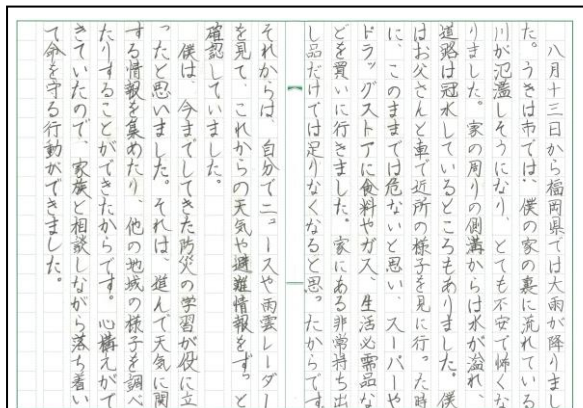 八月十三日から福岡県では大雨が降りまし
た。うきは市では、僕の家の裏に流れている
川が氾濫しそうになり、とても不安で怖くな
りました。家の周りの側溝からは水が溢れ、
道路は冠水しているところもありました。僕
はお父さんと車で近所の様子を見に行った時
に、このままでは危ないと思い、スーパーや
ドラッグストアに食料やガス、生活必需品な
どを買いに行きました。家にある非常持ち出
し品だけでは足りなくなると思ったからです
それからは、自分でニュースや雨雲レーダー
を見て、これからの天気や避難情報をずっと
確認していました。
僕は、今までしてきた防災の学習が役に立
ったと思いました。それは、進んで天気に関
する情報を集めたり、他の地域の様子を調べ
たりすることができたからです。心構えがで
きていたので、家族と相談しながら落ち着い
て命を守る行動ができました。